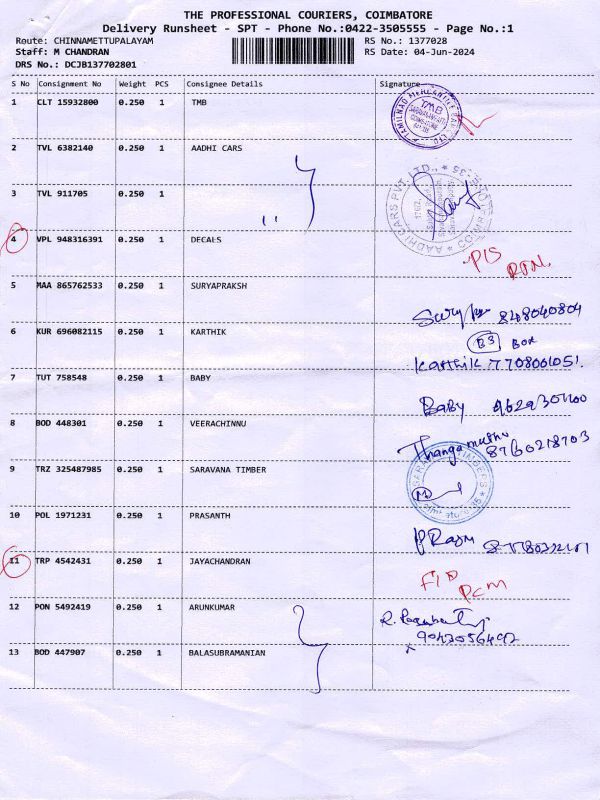 THE PROFESSIONAL COURIERS, COIMBATORE
Delivery Runsheet - SPT - Phone No.:0422-3505555 - Page No.:1
Route: CHINNAMETTUPALAYAM RS No.: 1377028
Staff: M CHANDRAN RS Date: 04-Jun-2024
DRS No.: DCJB137702801
S No Consignment No Weight PCS Consignee Details Signature
1 CLT 15932800 0.250 1 TMB
TAMILNAD MERCANTILE BANK LTD
TMB
2 TVL 6382140 0.250 1 AADHI CARS
AADHI CARS PVT. LTD.,
3 TVL 911705 0.250 1
4 VPL 948316391 0.250 1 DECALS
5 MAA 865762533 0.250 1 SURYAPRAKSH
848040804
6 KUR 696082115 0.250 1 KARTHIK
B3 Box
Karthik 7708001051.
7 TUT 758548 0.250 1 BABY
Baby
8 BOD 448301 0.250 1 VEERACHINNU
Thangamuthu 8760218703
9 TRZ 325487985 0.250 1 SARAVANA TIMBER
10 POL 1971231 0.250 1 PRASANTH
11 TRP 4542431 0.250 1 JAYACHANDRAN
12 PON 5492419 0.250 1 ARUNKUMAR
13 BOD 447907 0.250 1 BALASUBRAMANIAN